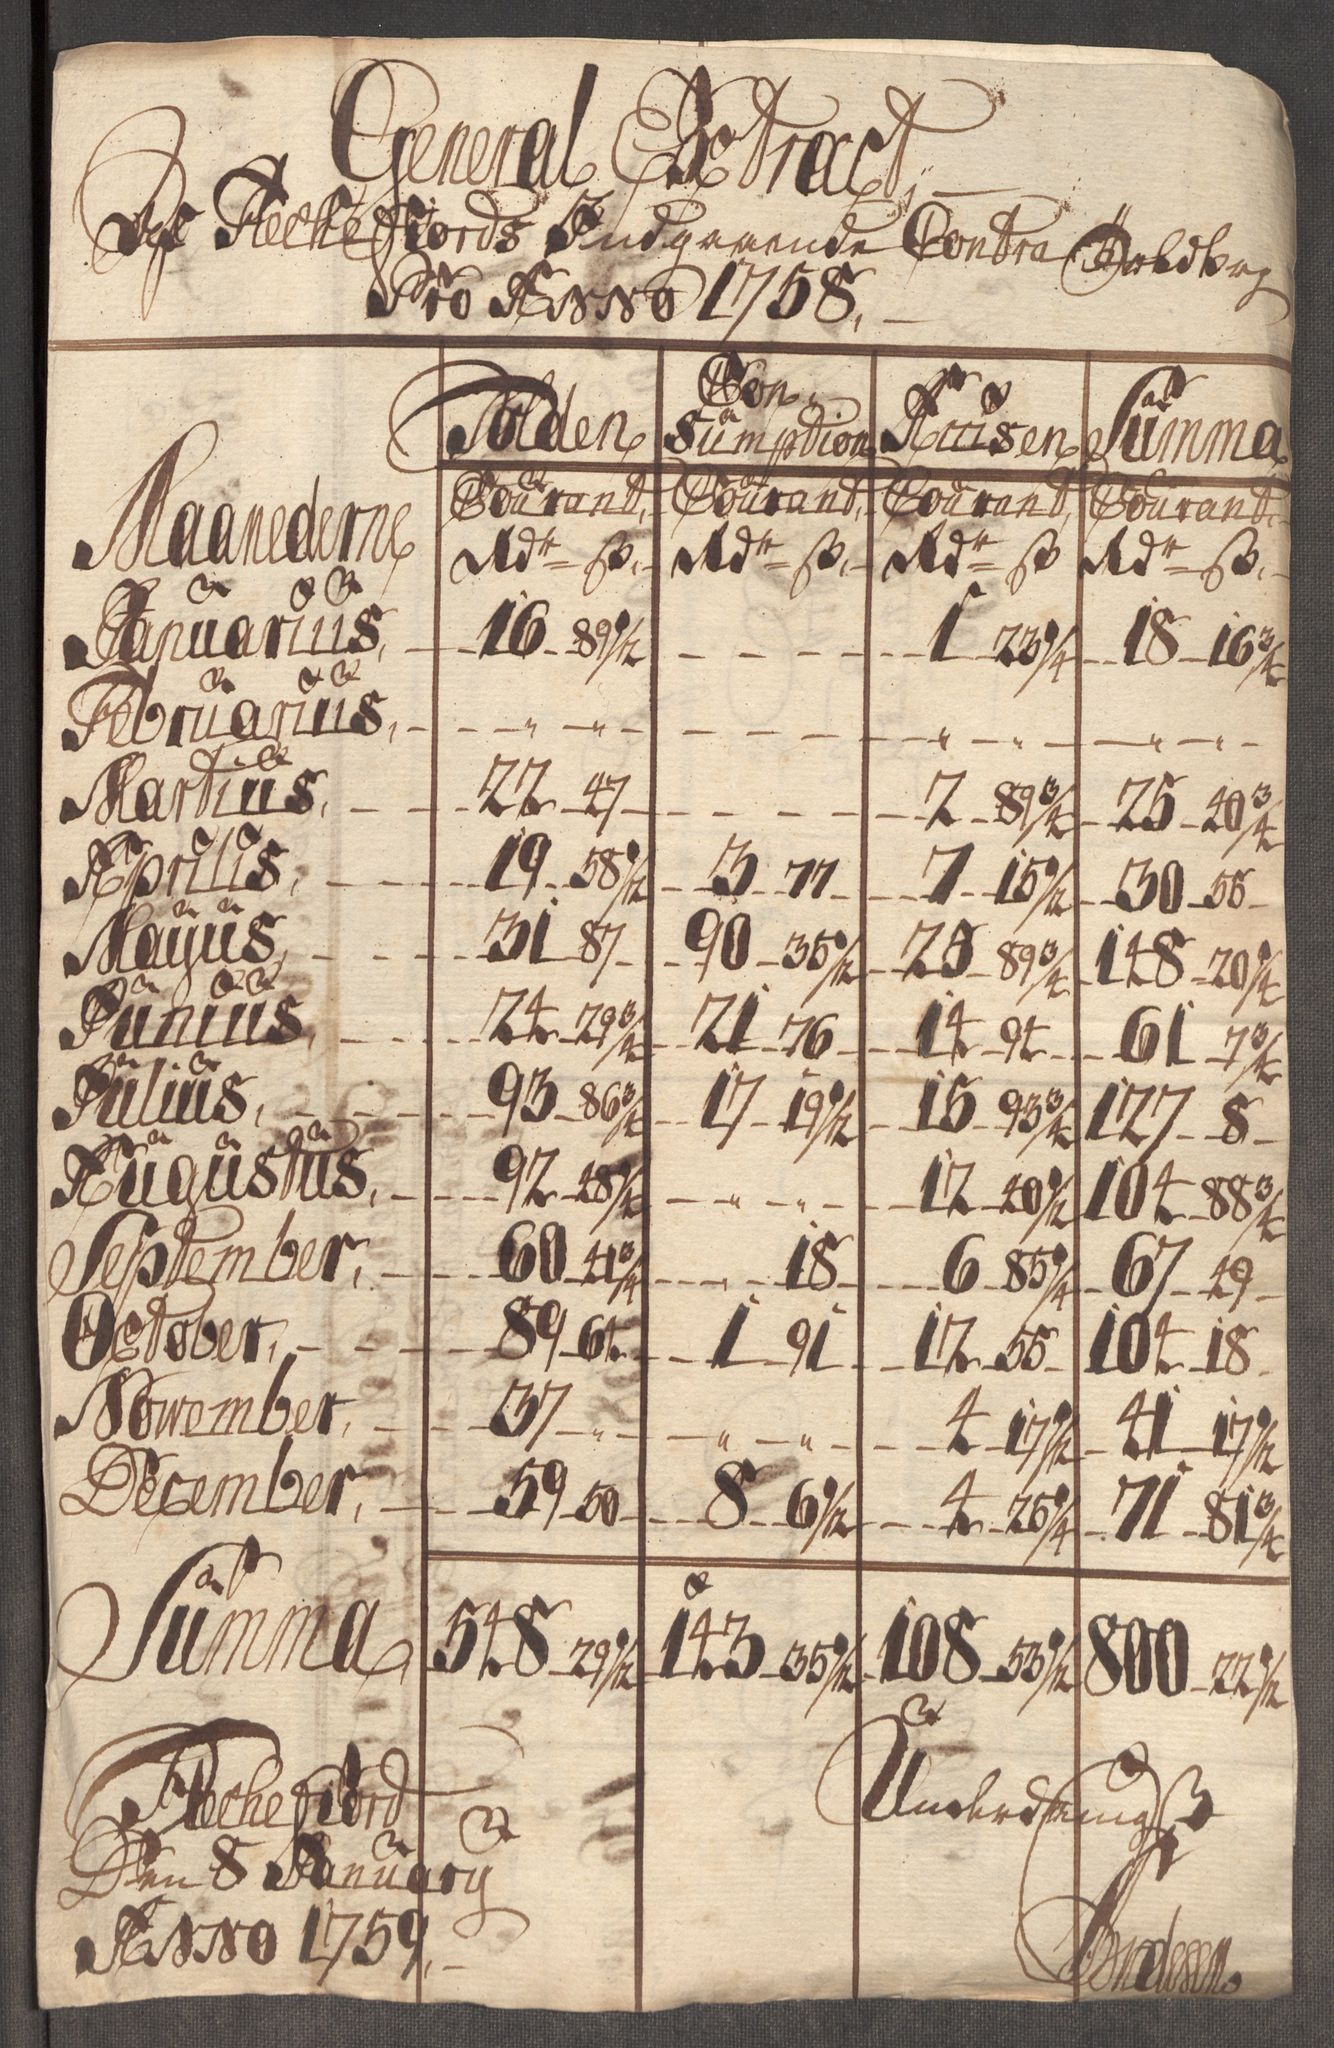 General Extract,
Af Fleckefiords Indgaaende Contra
Pro Anno 1758,
Con-
Tolden Sumption Accisen Summa
Courant, Courant, Courant, Courant,
Maanederne Rdr ß Rdr ß Rdr ß Rdr ß
Januarius, 16 89 1/2 1 23 1/4 18 16 3/4
Februarius, " " " " " "
Martius, 22 47 2 89 3/4 25 40 3/4
Aprilis, 19 58 1/2 3 77 7 15 1/2 30 55
Mayus, 31 87 90 35 1/2 25 89 3/4 148 20 1/4
Junius, 24 29 3/4 21 76 14 94 61 7 3/4
Julius, 93 86 3/4 17 19 1/2 15 93 3/4 127 8
Augustus, 92 48 1/4 " " 12 40 1/2 104 88 3/4
September, 60 41 3/4 " 18 6 85 1/4 67 49
October, 89 64 1 91 12 55 104 18
Nowember, 37 " " " 4 17 1/2 41 17 1/2
December, 59 50 8 6 1/2 4 25 1/4 71 81 3/4
Summa, 548 29 1/2 143 35 1/2 108 53 1/2 800 22 1/2
Fleckefiord Underdanigst
Den 8 January
Anno 1759,